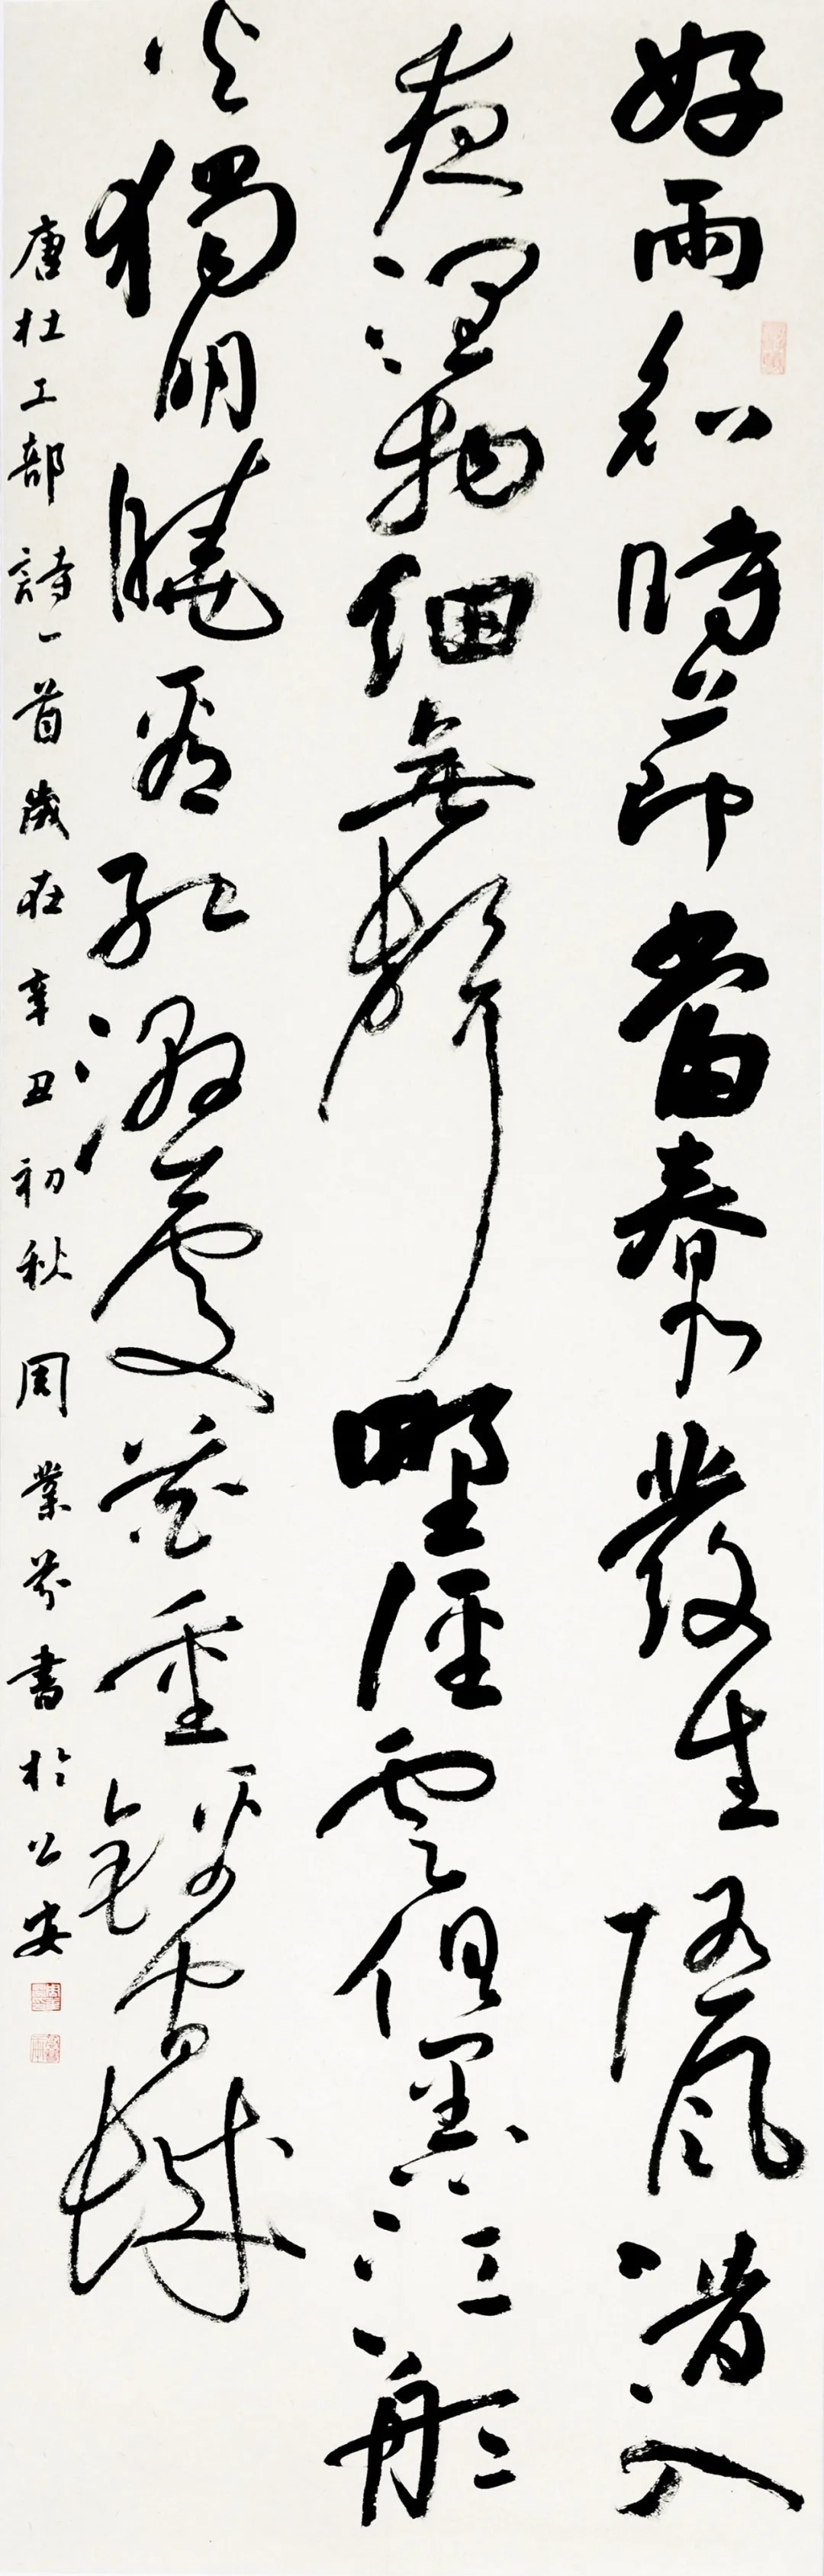 好雨知時節當春乃發生隨風潛入
夜潤物細無聲野徑雲俱黑江船
火獨明曉看紅濕處花重錦官城
唐杜工部詩一首歲在辛丑初秋周業芬書於公安